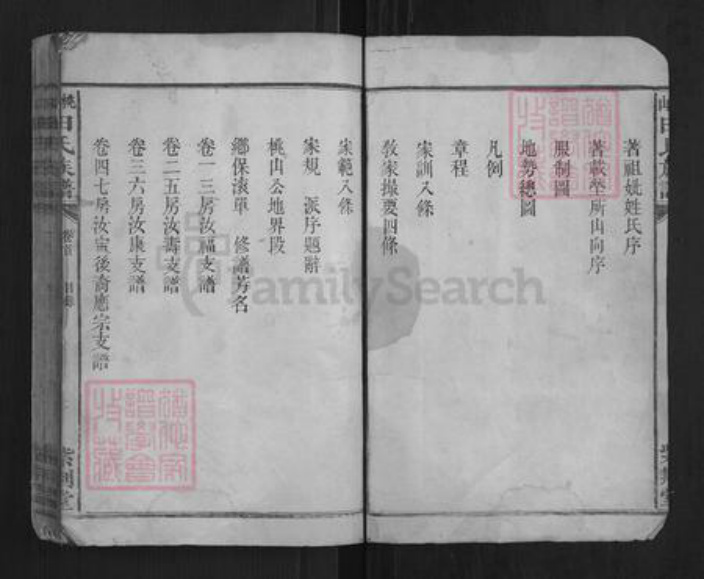 著祖妣姓氏序
著載塋所山向序
服制圖
地勢總圖
凡例
章程
家訓八條
敎家撮要四條
家範八條
家規 派序題辭
桃山公地界段
鄉保滚單 修譜芳名
卷一三房汝福支譜
卷二五房汝壽支譜
卷三六房汝康支譜
卷四七房汝寗後裔應宗支譜
田氏族譜
卷首
目錄
紫荆堂
FamilySearch